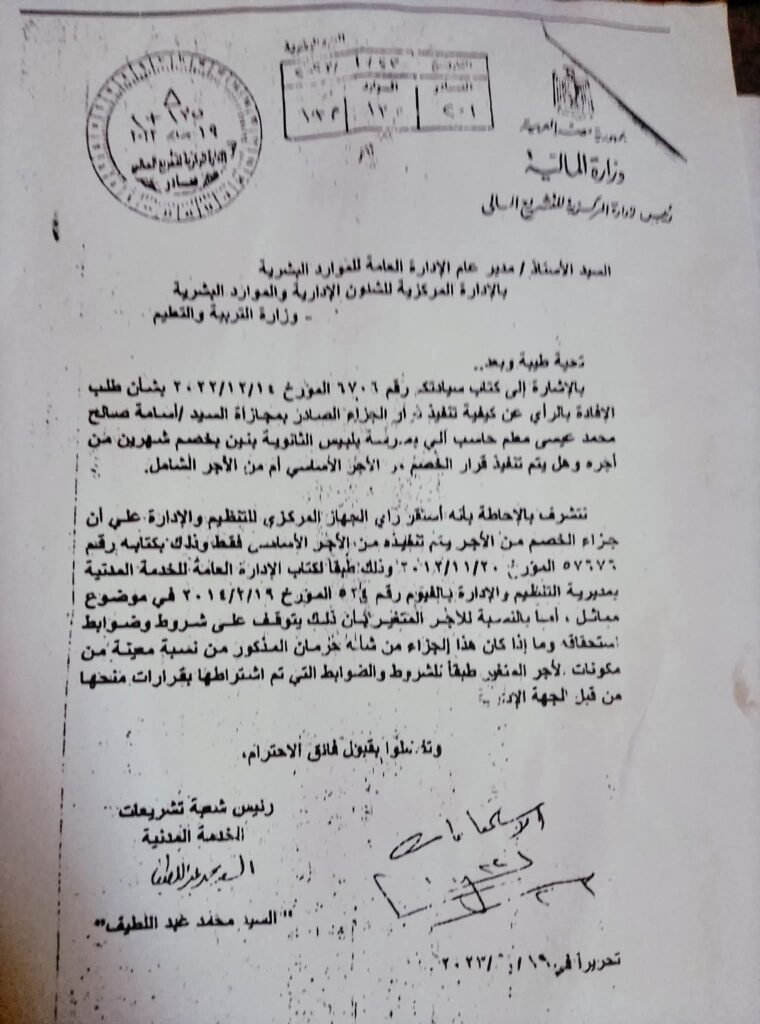 جمهورية مصر العربية
وزارة المالية
رئيس الإدارة المركزية للتشريع المالي
الإدارة المركزية للتشريع المالي
صادر
السيد الأستاذ / مدير عام الإدارة العامة للموارد البشرية
بالإدارة المركزية للشئون الإدارية والموارد البشرية
- وزارة التربية والتعليم
تحية طيبة وبعد..
بالإشارة إلى كتاب سيادتكم رقم ٦٧٠٦ المؤرخ ٢٠٢٢/١٢/١٤ بشأن طلب
الإفادة بالرأي عن كيفية تنفيذ قرار الجزاء الصادر بمجازاة السيد /أسامة صالح
محمد عيسى معلم حاسب آلي بمدرسة بلبيس الثانوية بنين بخصم شهرين من
أجره وهل يتم تنفيذ قرار الخصم من الأجر الأساسي أم من الأجر الشامل.
نتشرف بالإحاطة بأنه أستقر راي الجهاز المركزي للتنظيم والإدارة علي أن
جزاء الخصم من الأجر يتم تنفيذه من الأجر الأساسي فقط وذلك بكتابه رقم
٥٧٦٧٦ المؤرخ ٢٠١٢/١١/٢٠ وذلك طبقا لكتاب الإدارة العامة للخدمة المدنية
بمديرية التنظيم والإدارة بالفيوم رقم المؤرخ ٢٠١٤/٢/١٩ في موضوع
مماثل ، أما بالنسبة للأجر المتغير فإن ذلك يتوقف على شروط وضوابط
استحقاقه وما إذا كان هذا الجزاء من شأنه حرمان المذكور من نسبة معينة من
مكونات الأجر المتغير طبقا للشروط والضوابط التي تم اشتراطها بقرارات منحها
من قبل الجهة الإدارية
وتفضلوا بقبول فائق الاحترام،
رئيس شعبة تشريعات
الخدمة المدنية
السيد محمد عبد اللطيف
"السيد محمد عبد اللطيف"
الاستحقاقات
تحريرا في ١٩/ /٢٠٢٣